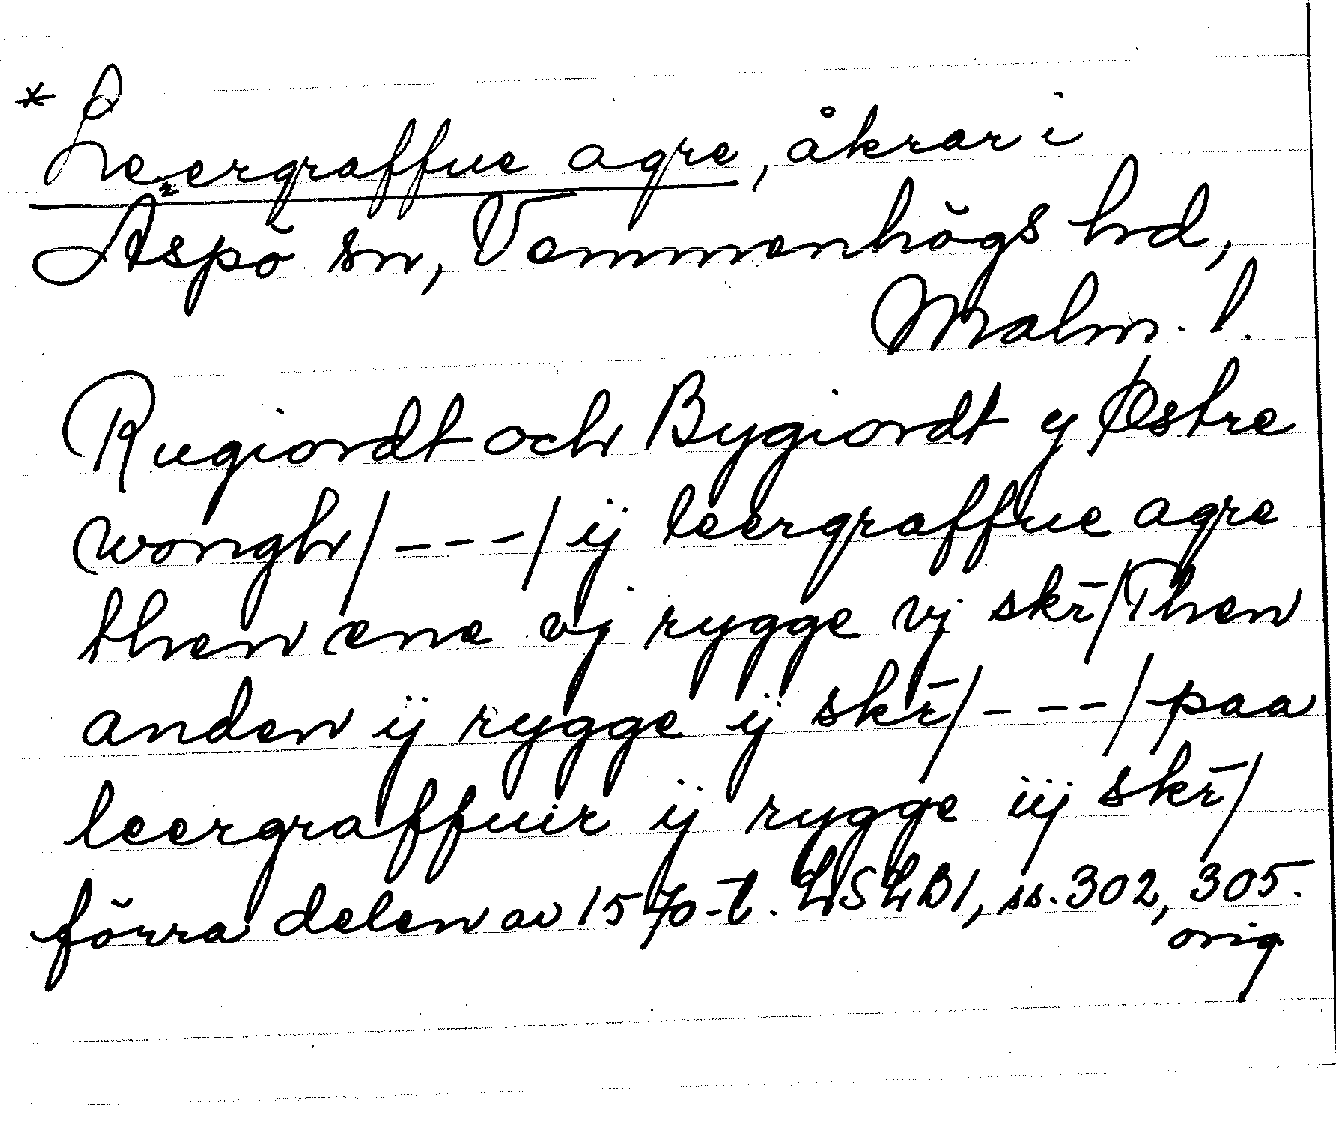 * Leergraffue agre, åkrar i
Äspö sn, Vemmenhögs hd,
Malm. l.
Rugiordt och Bygiordt y Østre
wongh/---/ ij leergraffue agre
then ene vj rygge vj skr̄/Then
anden ij rygge ij skr̄/---/paa
leergraffuir ij rygge iij skr̄/
förra delen av 1570-t. LSLB1, ss. 302, 305.
orig